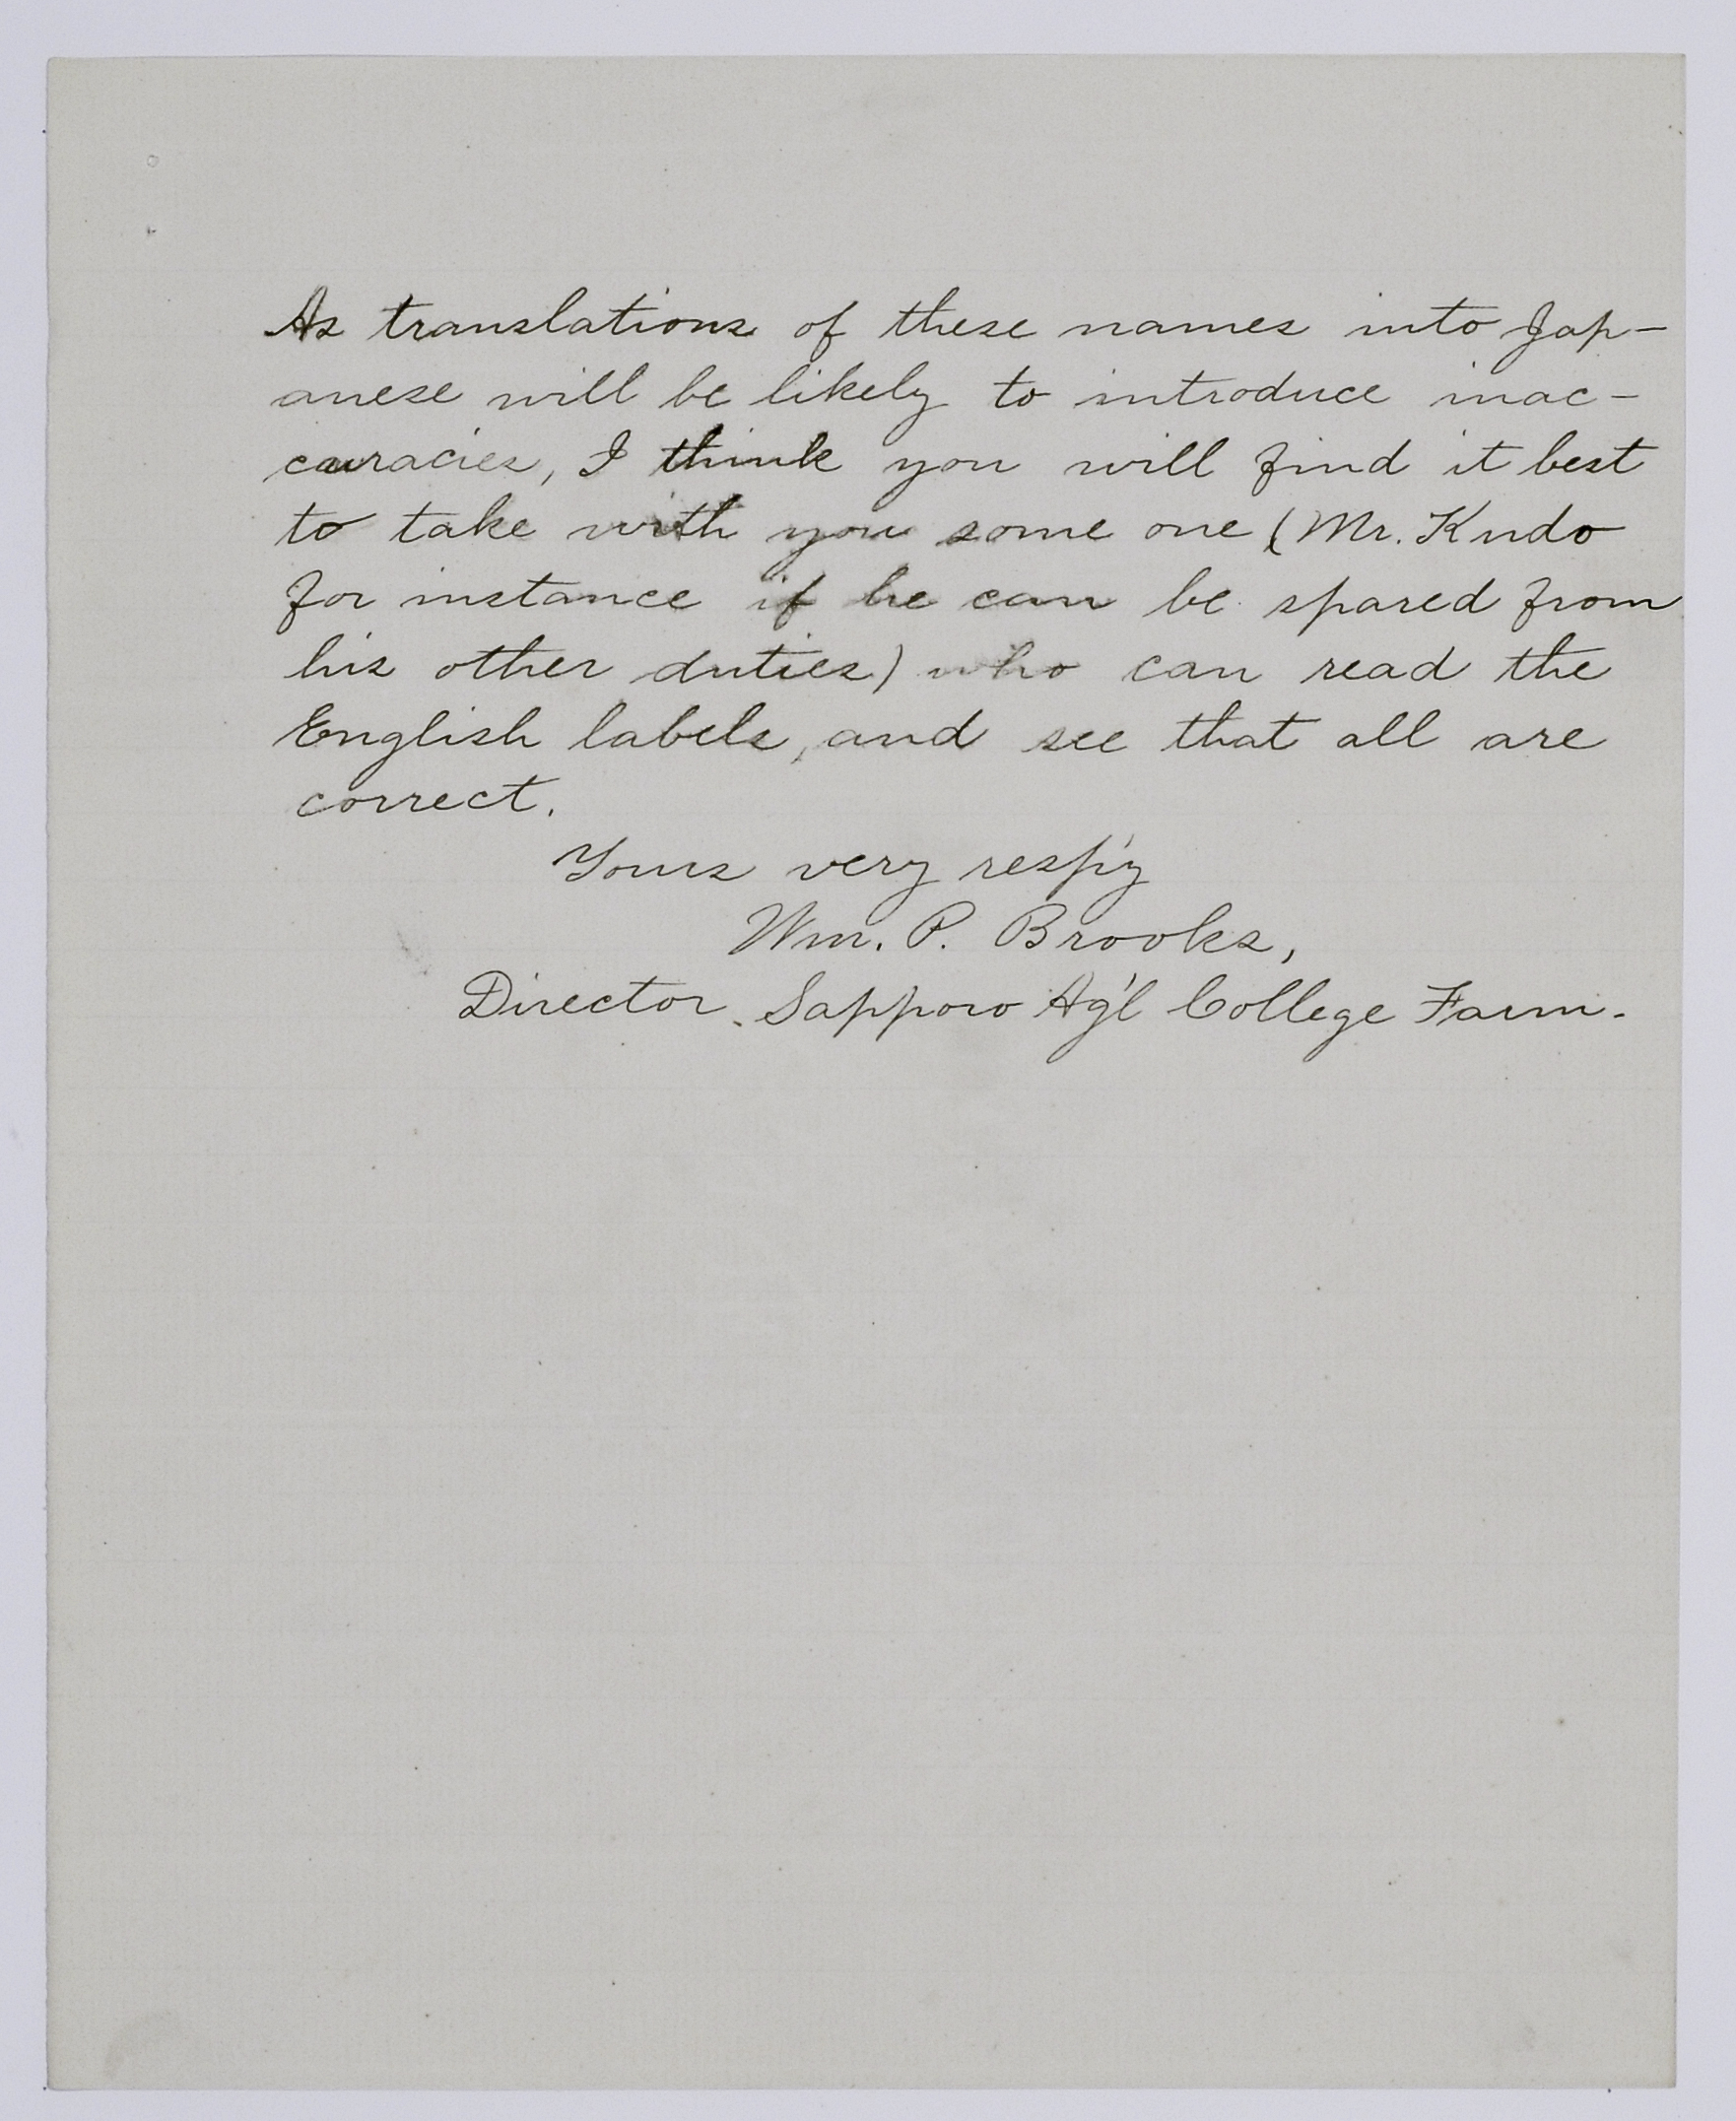 As translations of these names into Jap-
anese will be likely to introduce inac-
curacies, I think you will find it best
to take with you some one (Mr. Kudo
for instance if he can be spared from
his other duties) who can read the
English labels, and see that all are
correct.
Yours very resp'y
Wm. P. Brooks,
Director. Sapporo Ag'l College Farm.